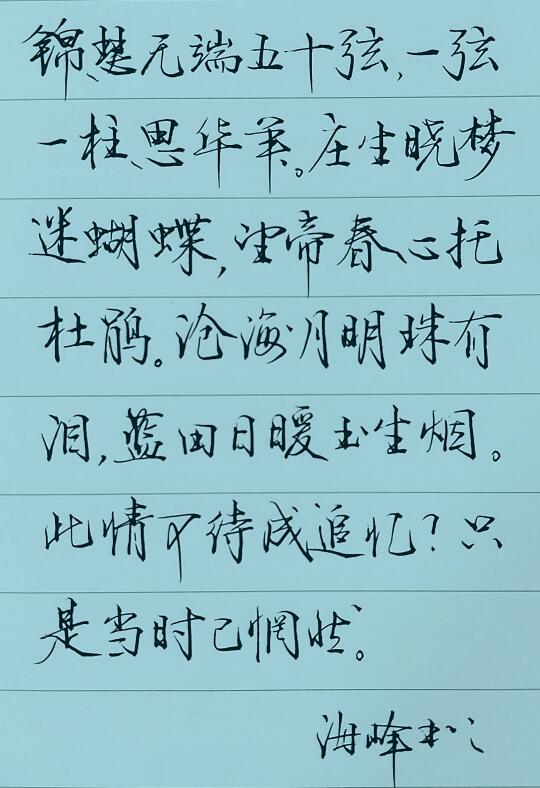 锦瑟无端五十弦,一弦
一柱思华年。庄生晓梦
迷蝴蝶,望帝春心托
杜鹃。沧海月明珠有
泪,蓝田日暖玉生烟。
此情可待成追忆?只
是当时已惘然。
海峰